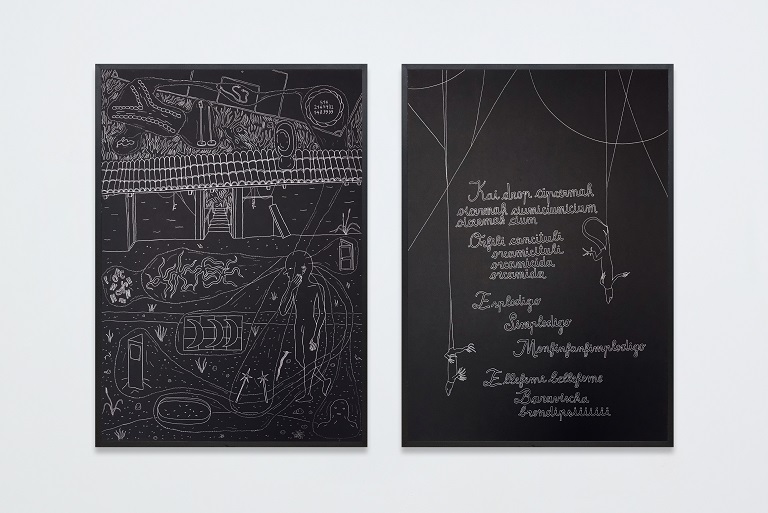 Kai drop ciparmah
oicermah ciumiciumicium
oicermah cium
Orfili concituli
orcamicituli
orcamicida
orcamida
Esplodigo
Simplodigo
Monfinfanfimplodigo
Ellefemi bellefeme
Baravischa
brondipsiiiiiii